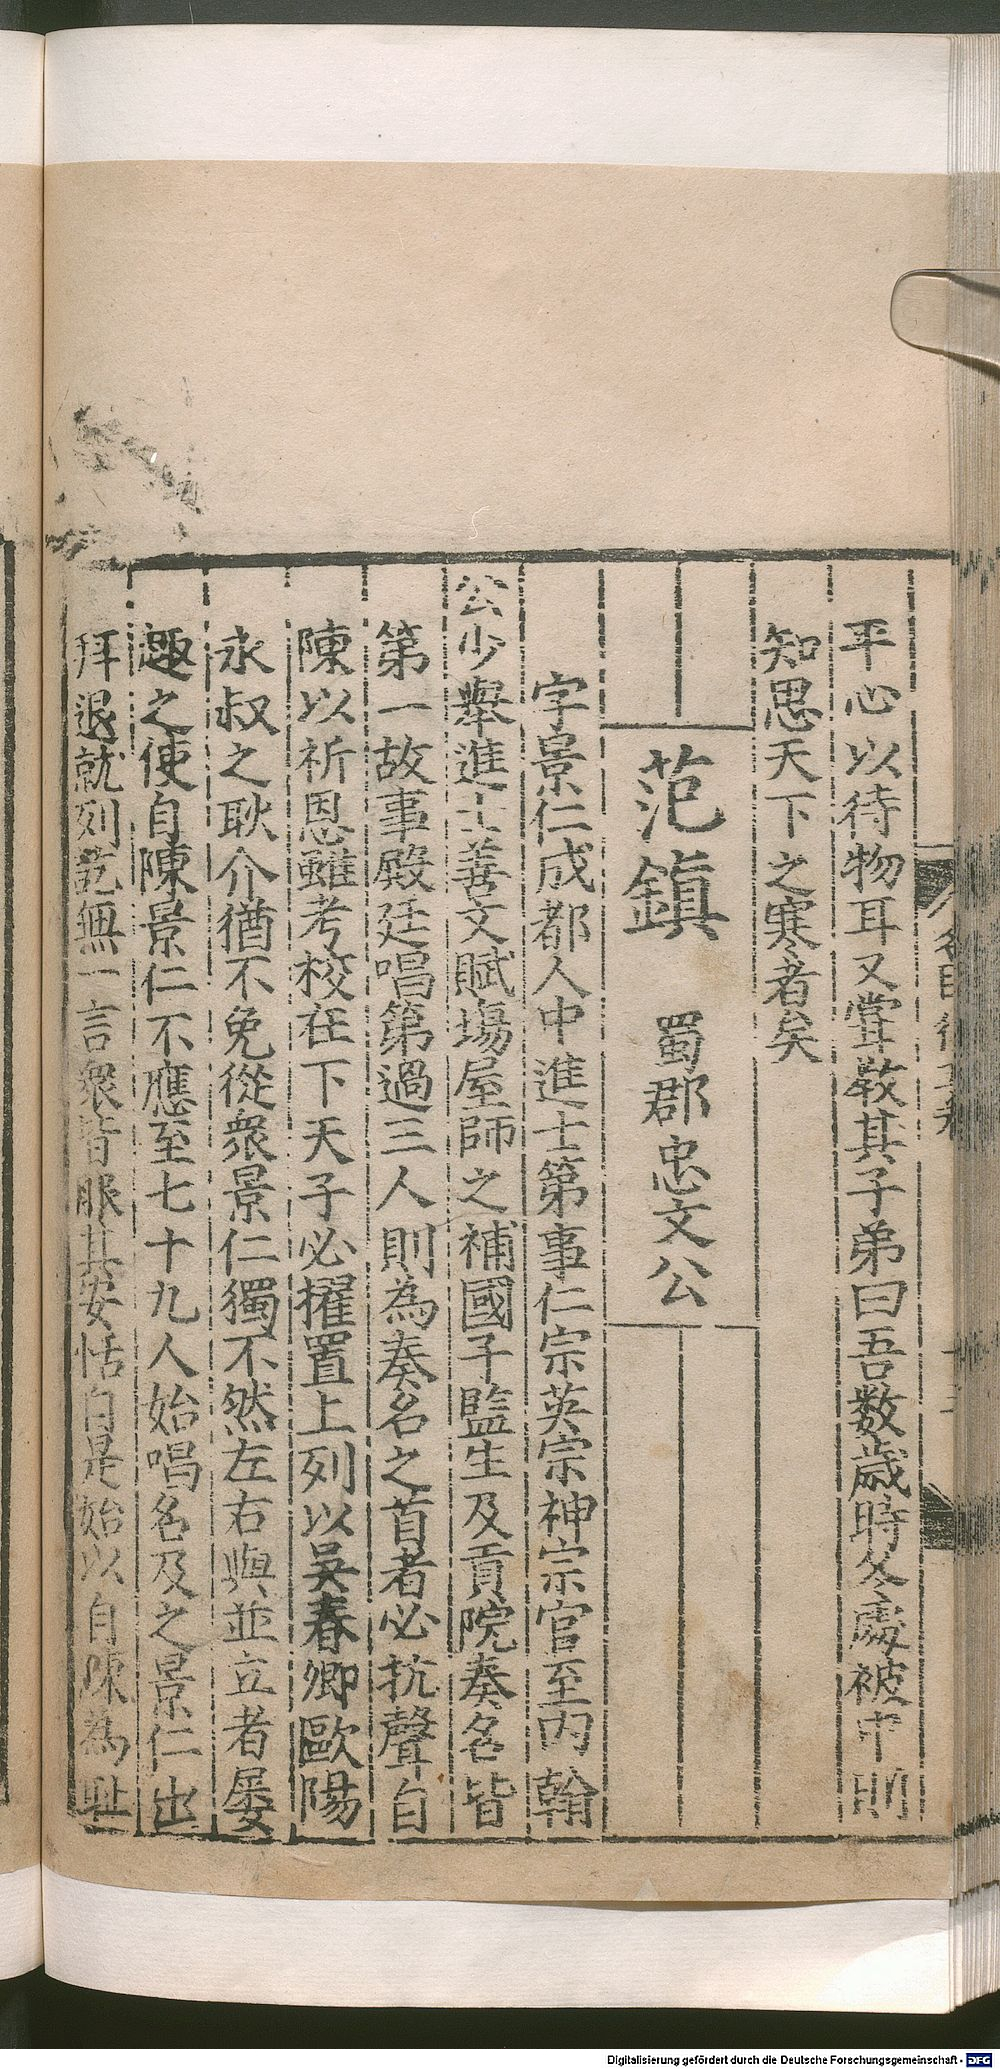 平心以待物耳又嘗教其子弟曰吾数歲時冬處被中則
知思天下之寒者矣
范鎮 蜀郡忠文公
字景仁成都人中進士第事仁宗英宗神宗官至內翰
公少舉進士善文賦場屋師之補國子監生及貢院奏名皆
第一故事殿廷唱第過三人則為奏名之首者必抗聲自
陳以祈恩雖考校在下天子必擢置上列以吳春卿歐陽
永叔之耿介猶不免從衆景仁獨不然左右與並立者屢
趣之使自陳景仁不應至七十九人始唱名及之景仁出
拜退就列訖無一言衆皆服其安恬自是始以自陳為恥
Digitalisierung gefördert durch die Deutsche Forschungsgemeinschaft - DFG